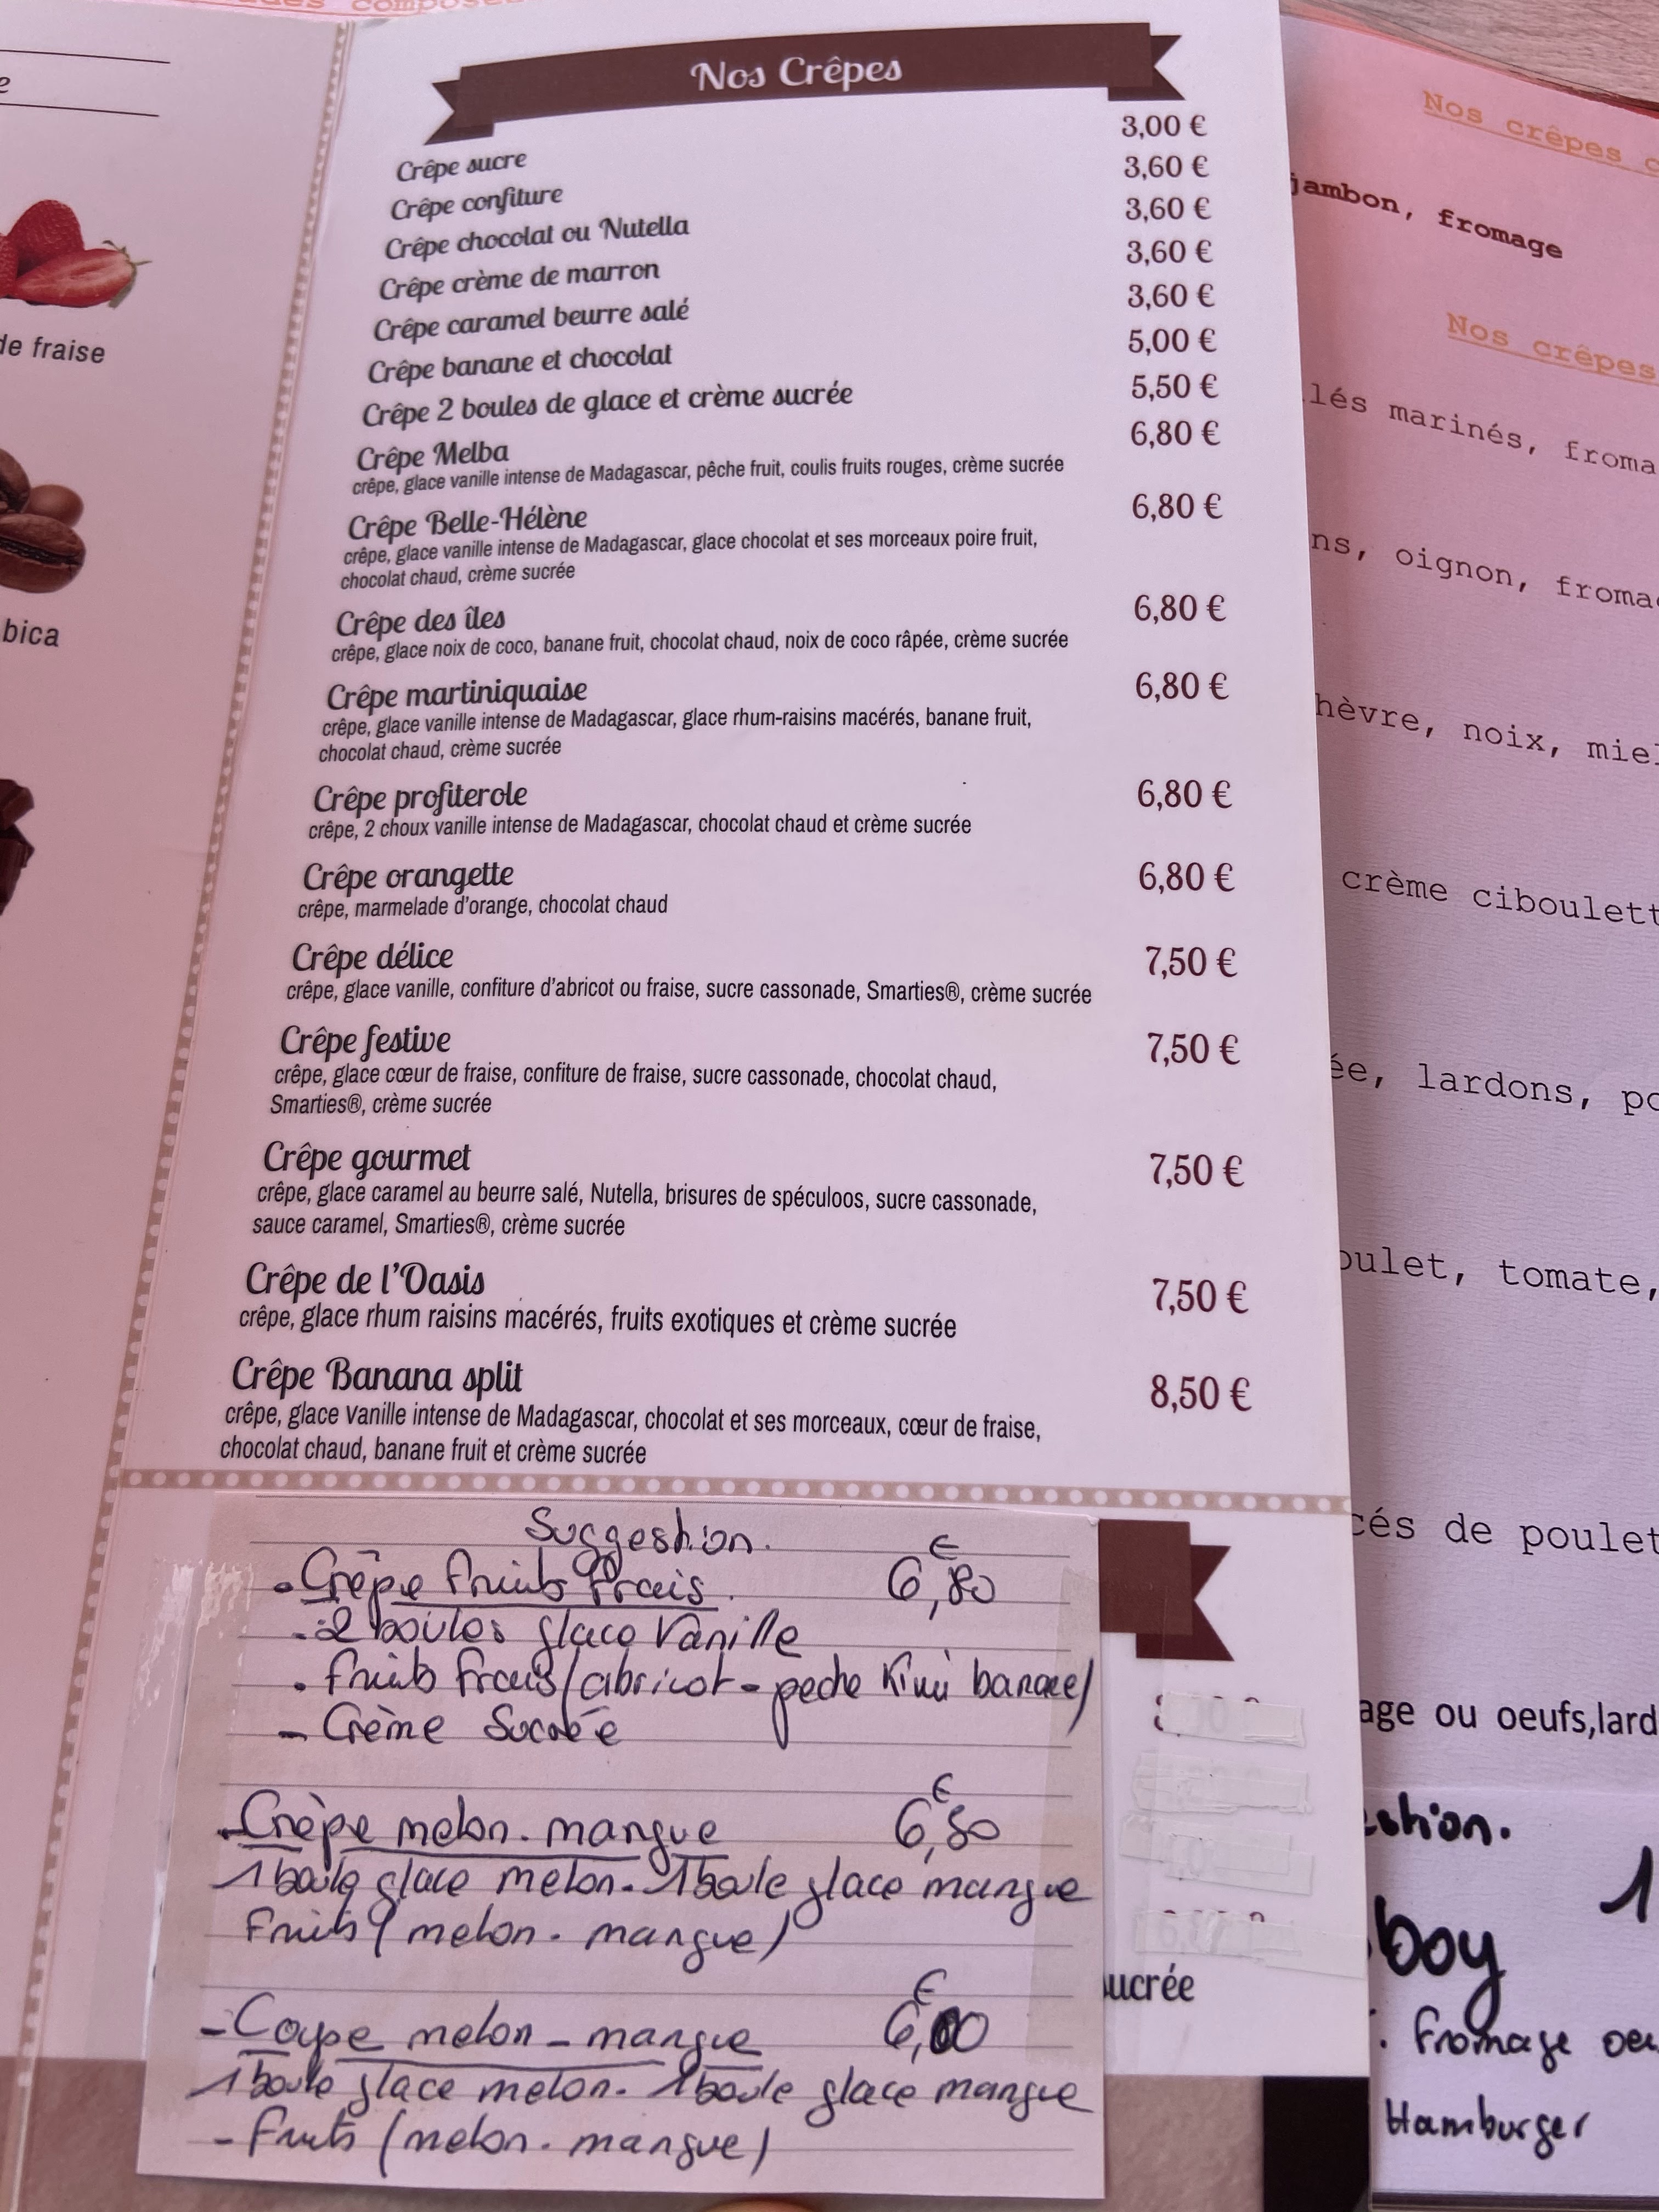 Nos Crêpes
Crêpe sucre 3,00 €
Crêpe confiture 3,60 €
Crêpe chocolat ou Nutella 3,60 €
Crêpe crème de marron 3,60 €
Crêpe caramel beurre salé 3,60 €
Crêpe banane et chocolat 5,00 €
Crêpe 2 boules de glace et crème sucrée 5,50 €
Crêpe Melba 6,80 €
crêpe, glace vanille intense de Madagascar, pêche fruit, coulis fruits rouges, crème sucrée
Crêpe Belle-Hélène 6,80 €
crêpe, glace vanille intense de Madagascar, glace chocolat et ses morceaux poire fruit,
chocolat chaud, crème sucrée
Crêpe des îles 6,80 €
crêpe, glace noix de coco, banane fruit, chocolat chaud, noix de coco râpée, crème sucrée
Crêpe martiniquaise 6,80 €
crêpe, glace vanille intense de Madagascar, glace rhum-raisins macérés, banane fruit,
chocolat chaud, crème sucrée
Crêpe profiterole 6,80 €
crêpe, 2 choux vanille intense de Madagascar, chocolat chaud et crème sucrée
Crêpe orangette 6,80 €
crêpe, marmelade d'orange, chocolat chaud
Crêpe délice 7,50 €
crêpe, glace vanille, confiture d'abricot ou fraise, sucre cassonade, Smarties®, crème sucrée
Crêpe festive 7,50 €
crêpe, glace cœur de fraise, confiture de fraise, sucre cassonade, chocolat chaud,
Smarties®, crème sucrée
Crêpe gourmet 7,50 €
crêpe, glace caramel au beurre salé, Nutella, brisures de spéculoos, sucre cassonade,
sauce caramel, Smarties®, crème sucrée
Crêpe de l'Oasis 7,50 €
crêpe, glace rhum raisins macérés, fruits exotiques et crème sucrée
Crêpe Banana split 8,50 €
crêpe, glace Vanille intense de Madagascar, chocolat et ses morceaux, cœur de fraise,
chocolat chaud, banane fruit et crème sucrée
Suggestion.
- Crêpe fruits frais. 6,80 €
- 2 boules glace Vanille
- fruits frais (abricot - peche Kiwi banane)
- Crème Sucrée
- Crèpe melon - mangue 6,80 €
1 boule glace melon - 1 boule glace mangue
Fruits (melon - mangue)
- Coupe melon - mangue 6,00 €
1 boule glace melon - 1 boule glace mangue
- Fruits (melon - mangue)
ucrée
e
de fraise
bica
Nos crêpes c
jambon, fromage
Nos crêpes
lés marinés, froma
ns, oignon, froma
hèvre, noix, miel
crème ciboulett
ée, lardons, po
oulet, tomate,
cés de poulet
age ou oeufs,lard
stion.
1
boy
. fromage oeu
Hamburger